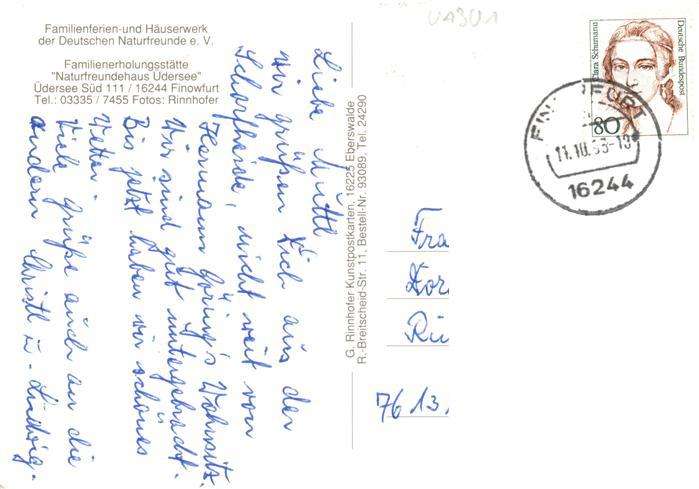 Familienferien-und Häuserwerk
der Deutschen Naturfreunde e. V.
Familienerholungsstätte
"Naturfreundehaus Üdersee"
Üdersee Süd 111 / 16244 Finowfurt
Tel.: 03335 / 7455 Fotos: Rinnhofer
Liebe
wir grüßen Dich aus der
Schorfheide, nicht weit von
Hermann Göring's Wohnsitz.
Wir sind gut untergebracht.
Bis jetzt haben wir schönes
Wetter.
Viele Grüße auch an die
andern Christl u. Ludwig.
G. Rinnhofer Kunstpostkarten, 16225 Eberswalde
R.-Breitscheid-Str. 11, Bestell-Nr. 93089, Tel. 24290
Clara Schumann
Deutsche Bundespost
80
11.10.93-13
16244
Fra
Kor
Rü
7613.